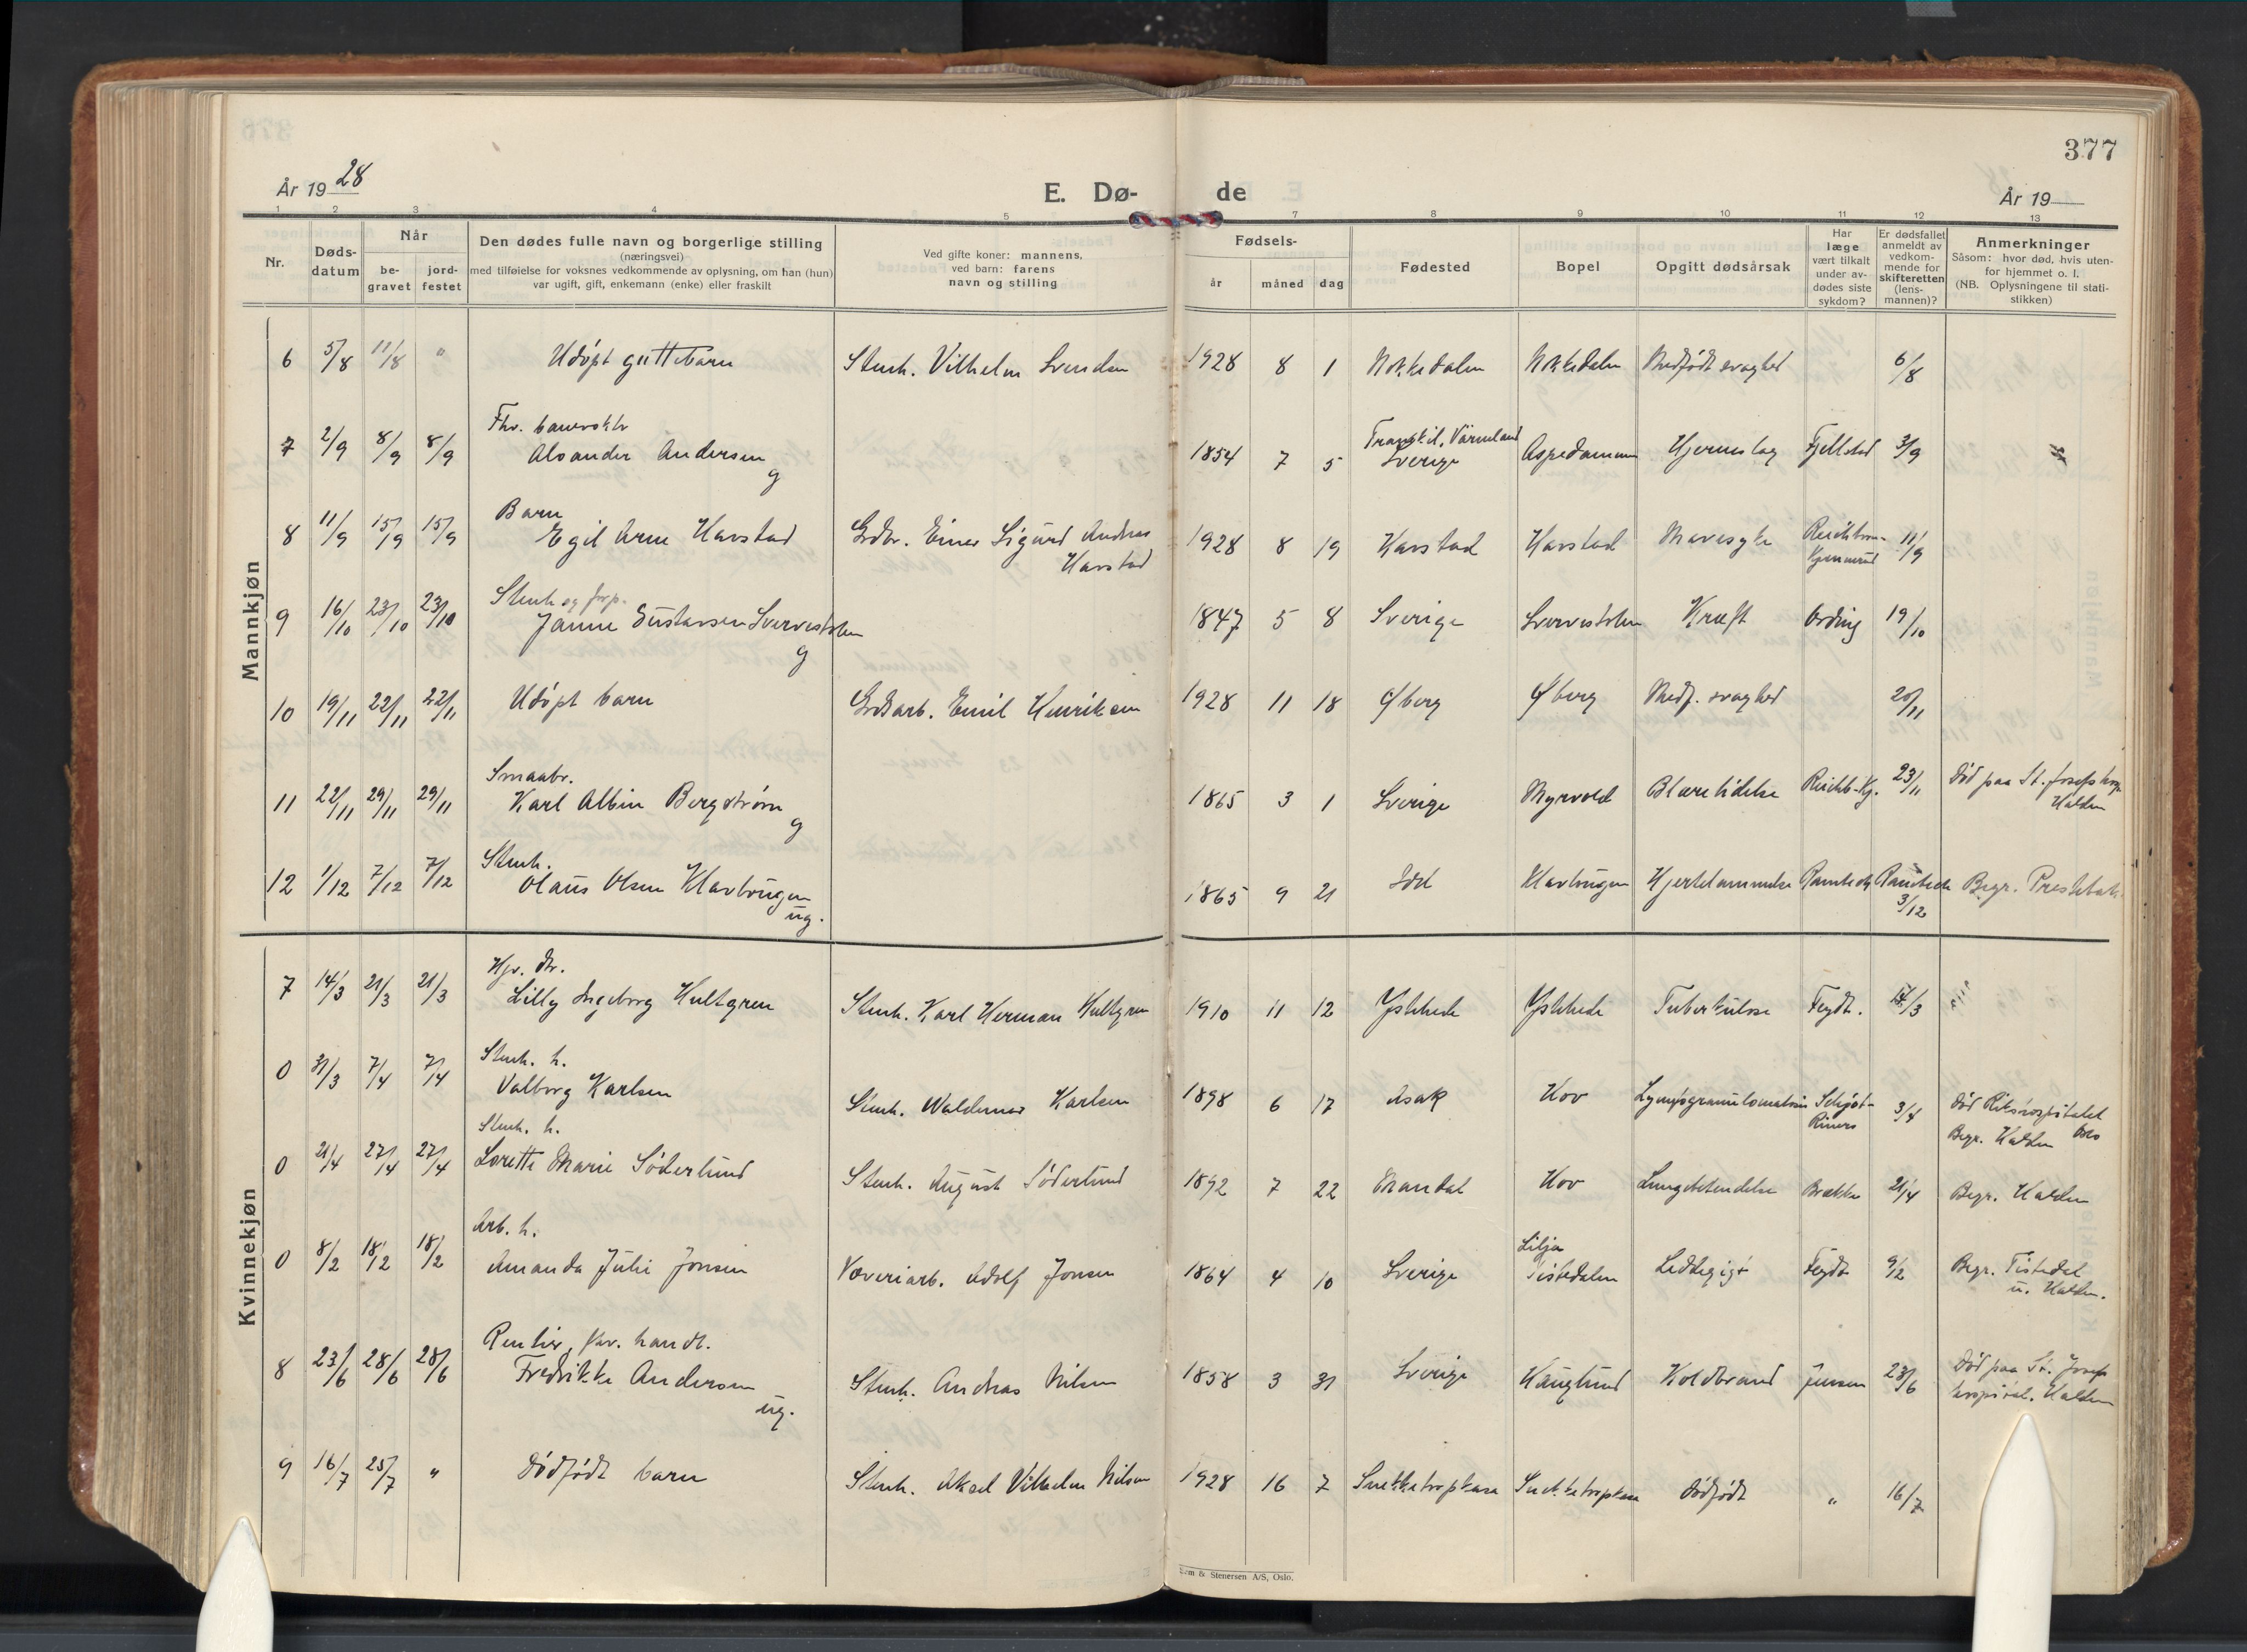 377
År 1928
E. Dø-
de
År 19
1 2 3 4 5 7 8 9 10 11 12 13
Nr.
Døds-
datum
Når
be-
gravet
jord-
festet
Den dødes fulle navn og borgerlige stilling
(næringsvei)
med tilføielse for voksnes vedkommende av oplysning, om han (hun)
var ugift, gift, enkemann (enke) eller fraskilt
Ved gifte koner: mannens,
ved barn: farens
navn og stilling
Fødsels-
år måned dag
Fødested
Bopel
Opgitt dødsårsak
Har
læge
vært tilkalt
under av-
dødes siste
sykdom?
Er dødsfallet
anmeldt av
vedkom-
mende for
skifteretten
(lens-
mannen)?
Anmerkninger
Såsom: hvor død, hvis uten-
for hjemmet o. l.
(NB. Oplysningene til stati-
stikken)
Mannkjøn
6 5/8 11/8 " Udøpt guttebarn Stenh. Vilhelm Svendsen 1928 8 1 Nokkedalen Nokkedalen Medfødt svaghed 6/8
Fhv. banevokter
7 2/9 8/9 8/9 Alexander Andersen g 1854 7 5 Trankil, Värmland
Sverige Aspedammen Hjerneslag Fjellstad 3/9
Barn
8 11/9 15/9 15/9 Egil Arne Harstad Grdbr. Einar Sigurd Andreas
Harstad 1928 8 19 Harstad Harstad Mavesyke 11/9
Stenh og forp.
9 16/10 23/10 23/10 Janne Gustavsen Svervestolen g 1847 5 8 Sverige Svervestolen Kræft Ording 19/10
10 19/11 22/11 22/11 Udøpt barn Grdsarb. Emil Henriksen 1928 11 18 Øberg Øberg Medf. svaghed 20/11
Smaabr.
11 22/11 29/11 29/11 Karl Albin Bergstrøm g 1865 3 1 Sverige Myrvold Blærelidelse Reichb-Kj. 23/11 Død paa St. Josefs hosp.
Halden
Stenh.
12 1/12 7/12 7/12 Olaus Olsen Klavbrugen ug. 1865 9 21 Idd Klavbrugen Hjertelammelse 3/12 Begr. Prestebak
Kvinnekjøn
Hjv. dtr.
7 14/3 21/3 21/3 Lilly Ingeborg Hultgren Stenh. Karl Herman Hultgren 1910 11 12 Ystehede Ystehede Tuberkulose Feydt. 14/3
Stenh. h.
0 31/3 7/4 7/4 Valborg Karlsen Stenh. Waldemar Karlsen 1898 6 17 Asak Hov Lymfogranulomatosis Schjøt-
3/4 Død Rikshospitalet
Oslo
Begr. Halden
Stenh. h.
0 21/4 27/4 27/4 Lorette Marie Söderlund Stenh. August Söderlund 1892 7 22 Mandal Hov Lungebetendelse Brække 21/4 Begr. Halden
Arb. h.
0 8/2 18/2 18/2 Amanda Julie Jonsen Væveriarb. Adolf Jonsen 1864 4 10 Sverige Lilja
Tistedalen Leddegigt Feydt 9/2 Begr. Tistedal
u. Halden.
Rentier, fhv. handl.
8 23/6 28/6 28/6 Fredrikke Andersen ug. Stenh. Andreas Nilsen 1858 3 31 Sverige Hauglund Koldbrand Jensen 23/6 Død paa St. Josefs
hospital. Halden
9 16/7 25/7 " Dødfødt barn Stenh. Aksel Vilhelm Nilsen 1928 16 7 Snekketropkasa Snekketropkasa Dødfødt " 16/7
& Stenersen A/S, Oslo.